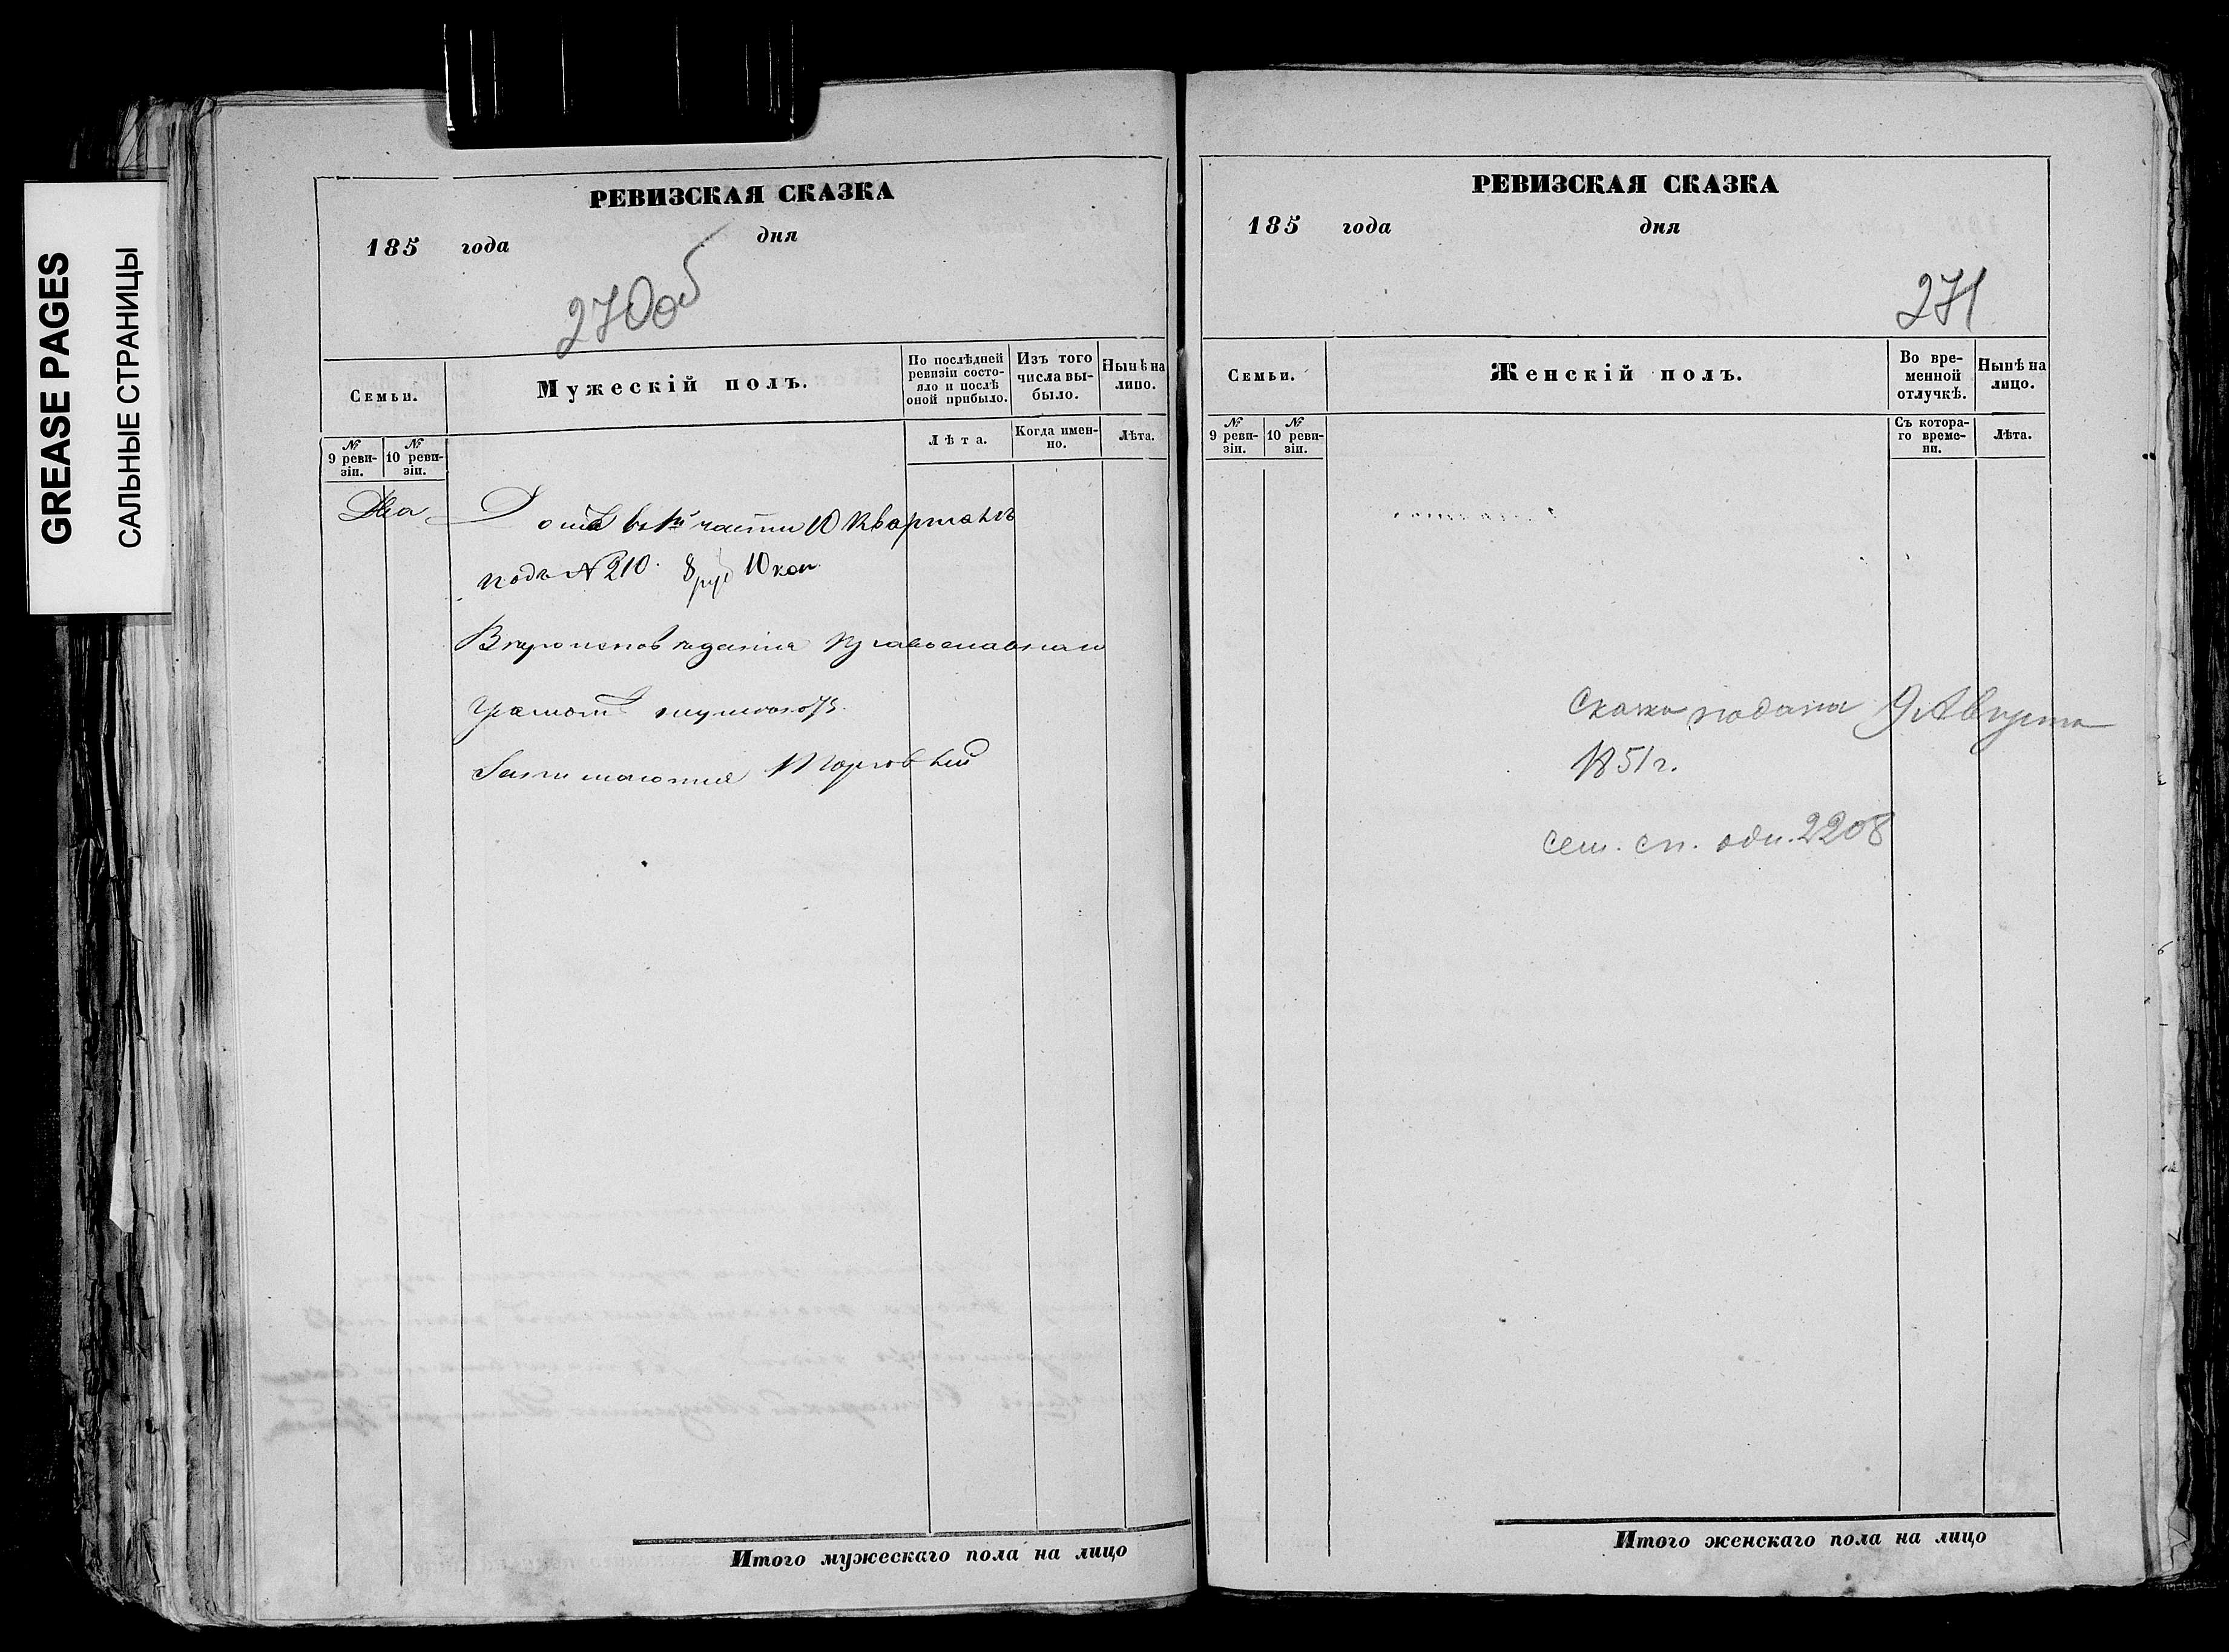 GREASE PAGES
САЛЬНЫЕ СТРАНИЦЫ
РЕВИЗСКАЯ СКАЗКА
185 года дня
270об
Семьи.
Мужескій полъ.
По послѣдней ревизіи состояло и послѣ оной прибыло.
Изъ того числа выбыло.
Нынѣ на лицо.
№ 9 ревизіи.
№ 10 ревизіи.
Лѣта.
Когда именно.
Лѣта.
Два
Домъ въ 1й части 10 Кварталъ
подъ № 210. 8 руб 10 коп
Вѣроисповѣданія православнаго
Грамотѣ
Занимаются Торговлей
Итого мужескаго пола на лицо
РЕВИЗСКАЯ СКАЗКА
185 года дня
271
Семьи.
Женскій полъ.
Во временной отлучкѣ.
Нынѣ на лицо.
№ 9 ревизіи.
№ 10 ревизіи.
Съ котораго времени.
Лѣта.
Сказка подана 9 Августа
1851 г.
сем. сп. 2208
Итого женскаго пола на лицо